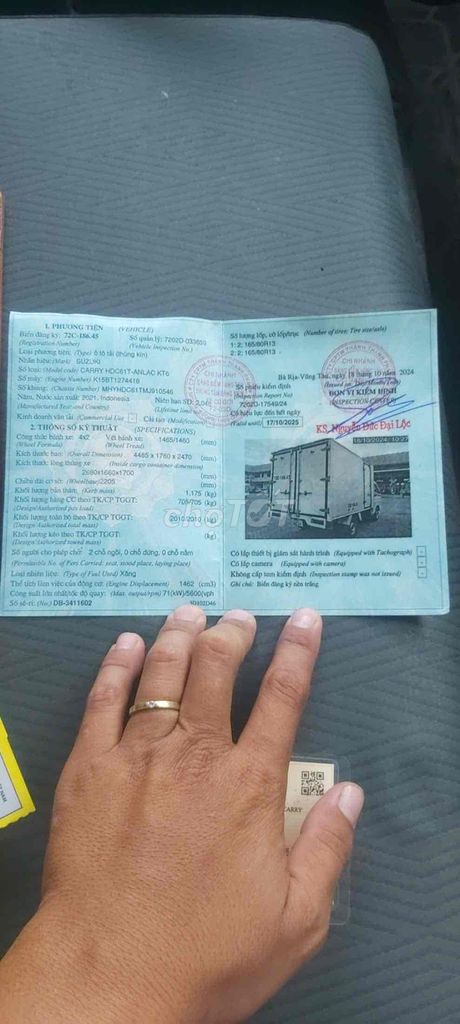 1. PHƯƠNG TIỆN (VEHICLE)
Biển đăng ký: 72C-186.45 Số quản lý: 7202D-033659
(Registration Number) (Vehicle Inspection No.)
Loại phương tiện: (Type) ô tô tải (thùng kín)
Nhãn hiệu: (Mark) SUZUKI
Số loại: (Model code) CARRY HDC61T-ANLAC KT6
Số máy: (Engine Number) K15BT1274418
Số khung: (Chassis Number) MHYHDC61TMJ910546
Năm, Nước sản xuất: 2021, Indonesia Niên hạn SD: 2046
(Manufactured Year and Country) (Lifetime limit
Kinh doanh vận tải (Commercial Use) Cải tạo (Modification)
2. THÔNG SỐ KỸ THUẬT (SPECIFICATIONS)
Công thức bánh xe: 4x2 Vết bánh xe: 1465/1460 (mm)
(Wheel Formula) (Wheel Tread)
Kích thước bao: (Overall Dimension) 4465 x 1760 x 2470 (mm)
Kích thước lòng thùng xe (Inside cargo container dimension)
2680x1660x1700 (mm)
Chiều dài cơ sở: (Wheelbase) 2205 (mm)
Khối lượng bản thân: (Kerb mass) 1.175 (kg)
Khối lượng hàng CC theo TK/CP TGGT: 705/705 (kg)
(Design/Authorized pay load)
Khối lượng toàn bộ theo TK/CP TGGT: 2010/2010 (kg)
(Design/Authorized total mass)
Khối lượng kéo theo TK/CP TGGT: (kg)
(Design/Authorized towed mass)
Số người cho phép chở: 2 chỗ ngồi, 0 chỗ đứng, 0 chỗ nằm
(Permissible No. of Pers Carried: seat, stood place, laying place)
Loại nhiên liệu: (Type of Fuel Used) Xăng
Thể tích làm việc của động cơ: (Engine Displacement) 1462 (cm3)
Công suất lớn nhất/tốc độ quay: (Max. output/rpm) 71(kW)/5600vph
Số sê-ri: (No.) DB-3411602
Số lượng lốp, cỡ lốp/trục (Number of tires; Tire size/axle)
1: 2; 165/80R13
2: 2; 165/80R13
Bà Rịa-Vũng Tàu, ngày 18 tháng 10 năm 2024
(Issued on: Day/Month/Year)
Số phiếu kiểm định ĐƠN VỊ KIỂM ĐỊNH
(Inspection Report No) (INSPECTION CENTER)
7202D-17549/24
Có hiệu lực đến hết ngày
(Valid until) 17/10/2025
KS. Nguyễn Đức Đại Lộc
CHI NHÁNH
CHI NHÁNH
chợTỐT
Có lắp thiết bị giám sát hành trình (Equipped with Tachograph)
Có lắp camera (Equipped with camera)
Không cấp tem kiểm định (Inspection stamp was not issued)
Ghi chú: Biển đăng ký nền trắng
CARRY